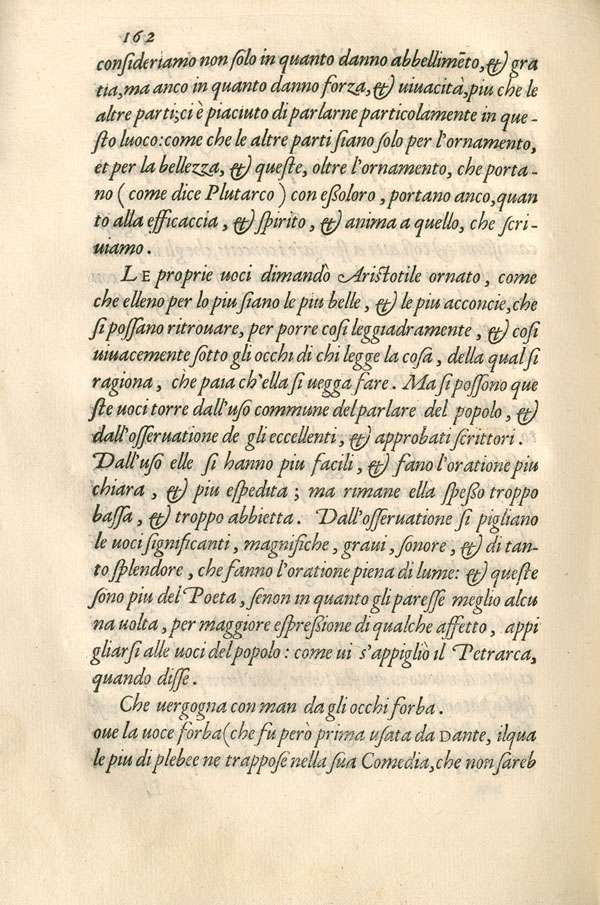 162
consideriamo non solo in quanto danno abbellimẽto, & gra
tia, ma anco in quanto danno forza, & uiuacità, piu che le
altre parti; ci è piaciuto di parlarne particolamente in que-
sto luoco: come che le altre parti siano solo per l'ornamento,
et per la bellezza, & queste, oltre l'ornamento, che porta-
no (come dice Plutarco) con eßoloro, portano anco, quan
to alla efficaccia, & spirito, & anima a quello, che scri-
uiamo.
LE proprie uoci dimandò Aristotile ornato, come
che elleno per lo piu siano le piu belle, & le piu acconcie, che
si possano ritrouare, per porre cosi leggiadramente, & cosi
uiuacemente sotto gli occhi di chi legge la cosa, della qual si
ragiona, che paia ch'ella si uegga fare. Ma si possono que
ste uoci torre dall'uso commune del parlare del popolo, &
dall'osseruatione de gli eccellenti, & approbati scrittori.
Dall'uso elle si hanno piu facili, & fano l'oratione piu
chiara, & piu espedita; ma rimane ella speßo troppo
bassa, & troppo abbietta. Dall'osseruatione si pigliano
le uoci significanti, magnifiche, graui, sonore, & di tan-
to splendore, che fanno l'oratione piena di lume: & queste
sono piu del Poeta, senon in quanto gli paresse meglio alcu
na uolta, per maggiore espressione di qualche affetto, appi
gliarsi alle uoci del popolo: come ui s'appigliò il Petrarca,
quando disse.
Che uergogna con man da gli occhi forba.
oue la uoce forba (che fu però prima usata da Dante, ilqua
le piu di plebee ne trappose nella sua Comedia, che non sareb